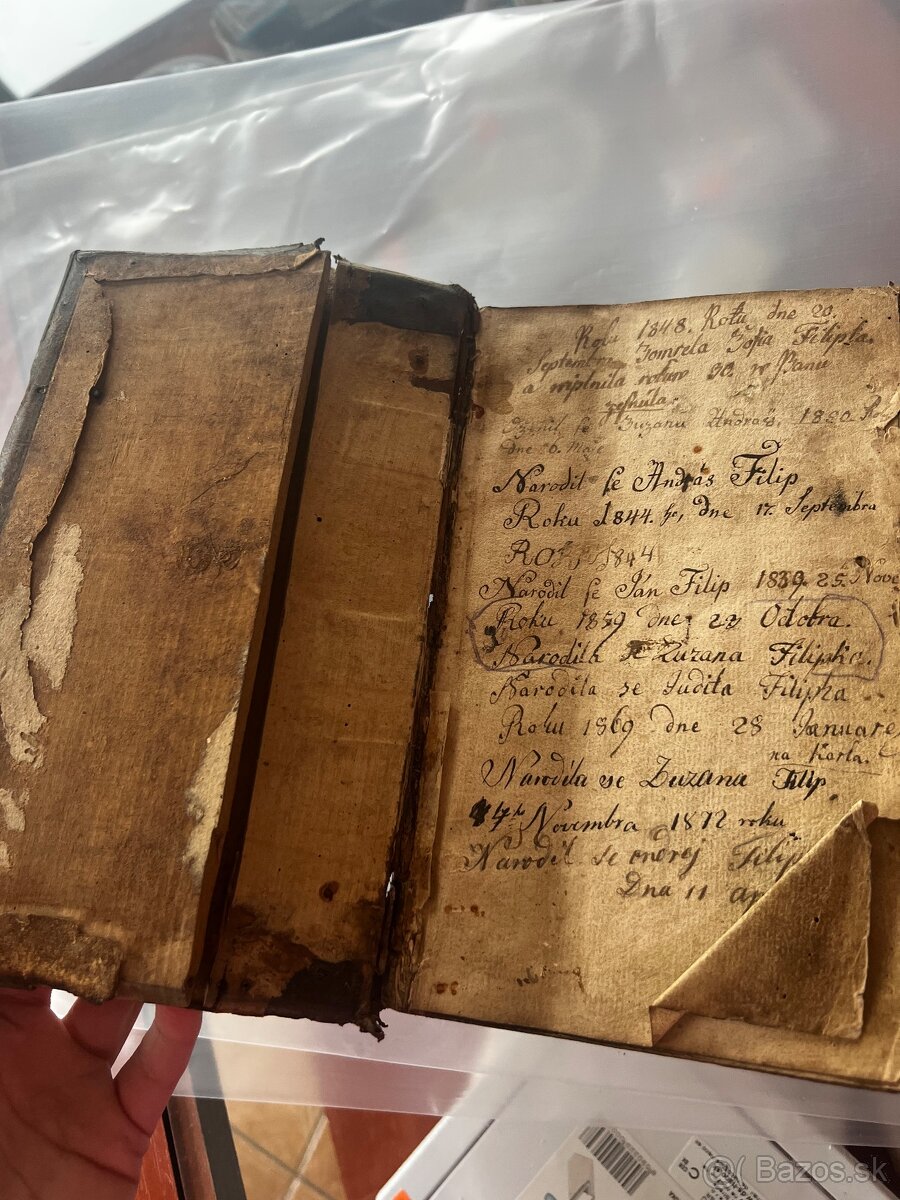 Roku 1848. Roku dne 20.
Septembra Zomrela Žofia Filipka.
a wiplnila rokuw 90. w Panu
zesnula.
se Zuzanu Andraš, 1820.
dne 6. Maje
Narodil se Andráš Filip
Roku 1844. ho, dne 17. Septembra
ROK, 1844
Narodil se Ján Filip 1839. 25. Nove
Roku 1859 dne 22 Odobra.
Narodila se Zuzana Filipka.
Narodila se Judita Filipka
Roku 1869 dne 28 Januare
na Karla.
Narodila se Zuzana Filip.
4 Novembra 1872 roku
Narodil se ondrej Filip
Dna 11 ap
@ Bazos.sk